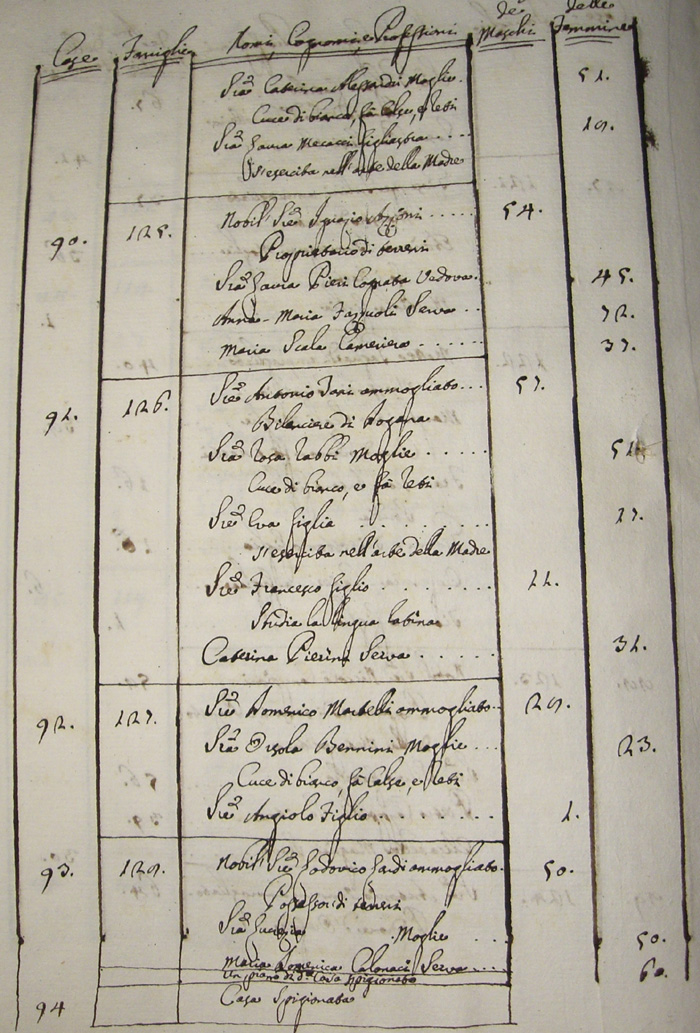 Case Famiglie Nomi, Cognomi, e Professioni de' Maschi delle Femmine
Sig.ra Caterina Alessandri Moglie. 51.
Cuce di bianco, fà Calze, e Reti
Sig.ra Laura Mecacci figliastra.... 19.
S'esercita nell'arte della Madre
90. 125. Nobil' Sig.re Ignazio ..... 54.
Proprietario di terreni
Sig.ra Laura Pieri Cognata Vedova. 45.
Anna Maria Serva.. 72.
Maria Scala Cameriera...... 37.
91. 126. Sig.re Antonio ammogliato... 57.
Bilanciere di Dogana
Sig.ra Rosa Moglie...... 51
Cuce di bianco, e fà Reti
Sig.ra Eva figlia........ 17.
s'esercita nell'arte della Madre
Sig.re Francesco figlio......... 11.
Studia la lingua latina
Caterina Pierini Serva...... 31.
92. 127. Sig.re Domenico Martelli ammogliato.. 29.
Sig.ra Orsola Bennini Moglie... 23.
Cuce di bianco, fà Calze, e Reti
Sig.re Angiolo Figlio........ 1.
93. 129. Nobil' Sig.re Lodovico ammogliato. 50.
Possessor di terreni
Sig.ra Lucrezia Moglie ... 50.
Maria Domenica Calonaci Serva..... 60.
Un piano di d.a Casa spigionato
94 Casa Spigionata